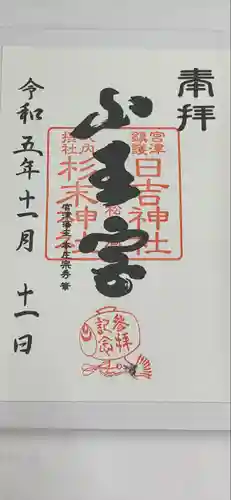 奉拝
宮津
鎮護
日吉神社
山王宮
境内
摂社
杉末神社
宮津藩主 本庄宗秀 筆
令和五年十一月十一日
参拝
記念